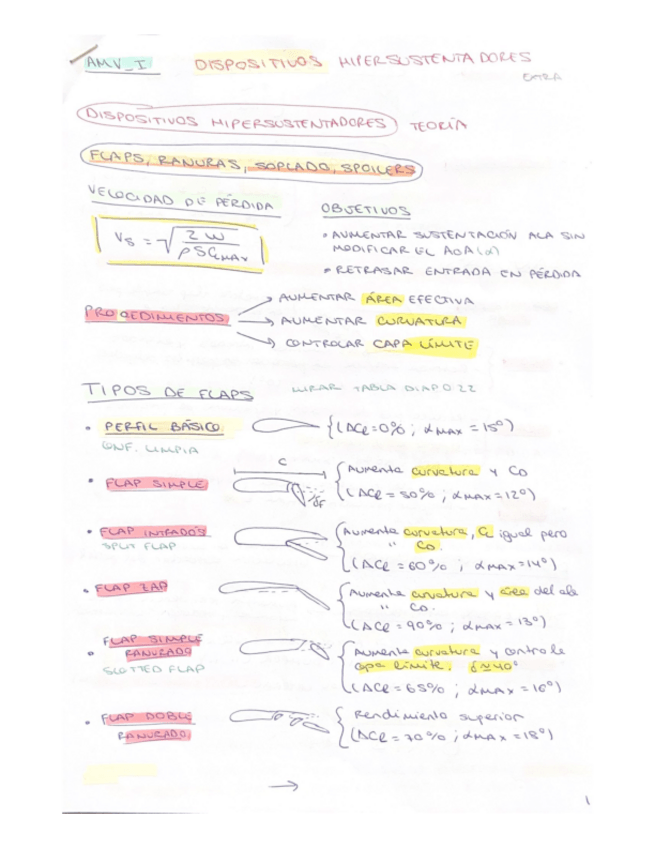 AMV_I DISPOSITIVOS HIPERSUSTENTADORES
EXTRA
DISPOSITIVOS HIPERSUSTENTADORES TEORÍA
FLAPS, RANURAS, SOPLADO, SPOILERS
VELOCIDAD DE PÉRDIDA
OBJETIVOS
Vs = √(2W / ρSCLMAX)
• AUMENTAR SUSTENTACIÓN ALA SIN
MODIFICAR EL AOA (α)
• RETRASAR ENTRADA EN PÉRDIDA
PROCEDIMIENTOS
→ AUMENTAR ÁREA EFECTIVA
→ AUMENTAR CURVATURA
→ CONTROLAR CAPA LÍMITE
TIPOS DE FLAPS MIRAR TABLA DIAPO 22
• PERFIL BÁSICO {(ΔCL=0%; αMAX = 15º)
CONF. LIMPIA
C
• FLAP SIMPLE { Aumenta curvatura y CD
δF
(ΔCL = 50%; αMAX = 12º)
• FLAP INTRADÓS { Aumenta curvatura, CL igual pero
SPLIT FLAP " CD.
(ΔCL = 60%; αMAX = 14º)
• FLAP ZAP { Aumenta curvatura y área del ala
" CD.
(ΔCL = 90%; αMAX = 13º)
• FLAP SIMPLE
RANURADO { Aumenta curvatura y controla
SLOTTED FLAP capa límite. δ≈40º
(ΔCL = 65%; αMAX = 16º)
• FLAP DOBLE { Rendimiento superior
RANURADO (ΔCL = 70%; αMAX = 18º)
→
1